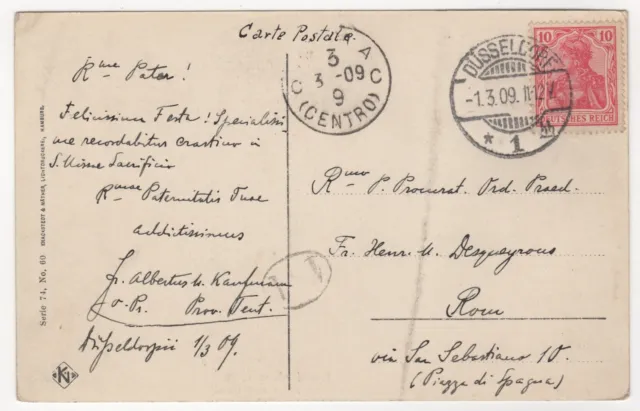 Carte Postale.
R.me Pater!
Felicissima Festa! Specialissi
me recordabitur crastino in
S. Missae Sacrificio
R.mae Paternitatis Tuae
addictissimus
fr. Albertus M. Kaufmann
o. Pr. Prov. Teut.
Düsseldorpii 1/3 09.
3
3 - 09
9
(CENTRO)
DÜSSELDORF
-1.3.09. 11-12 V.
* 1
10 10
DEUTSCHES REICH
R.mo P. Procurat. Ord. Praed.
Fr. Henr. M. Desqueyrous
Rom
via San Sebastiano 10.
(Piazza di Spagna)
Serie 74, No. 60
KNACKSTEDT & NÄTHER, LICHTDRUCKEREI, HAMBURG.